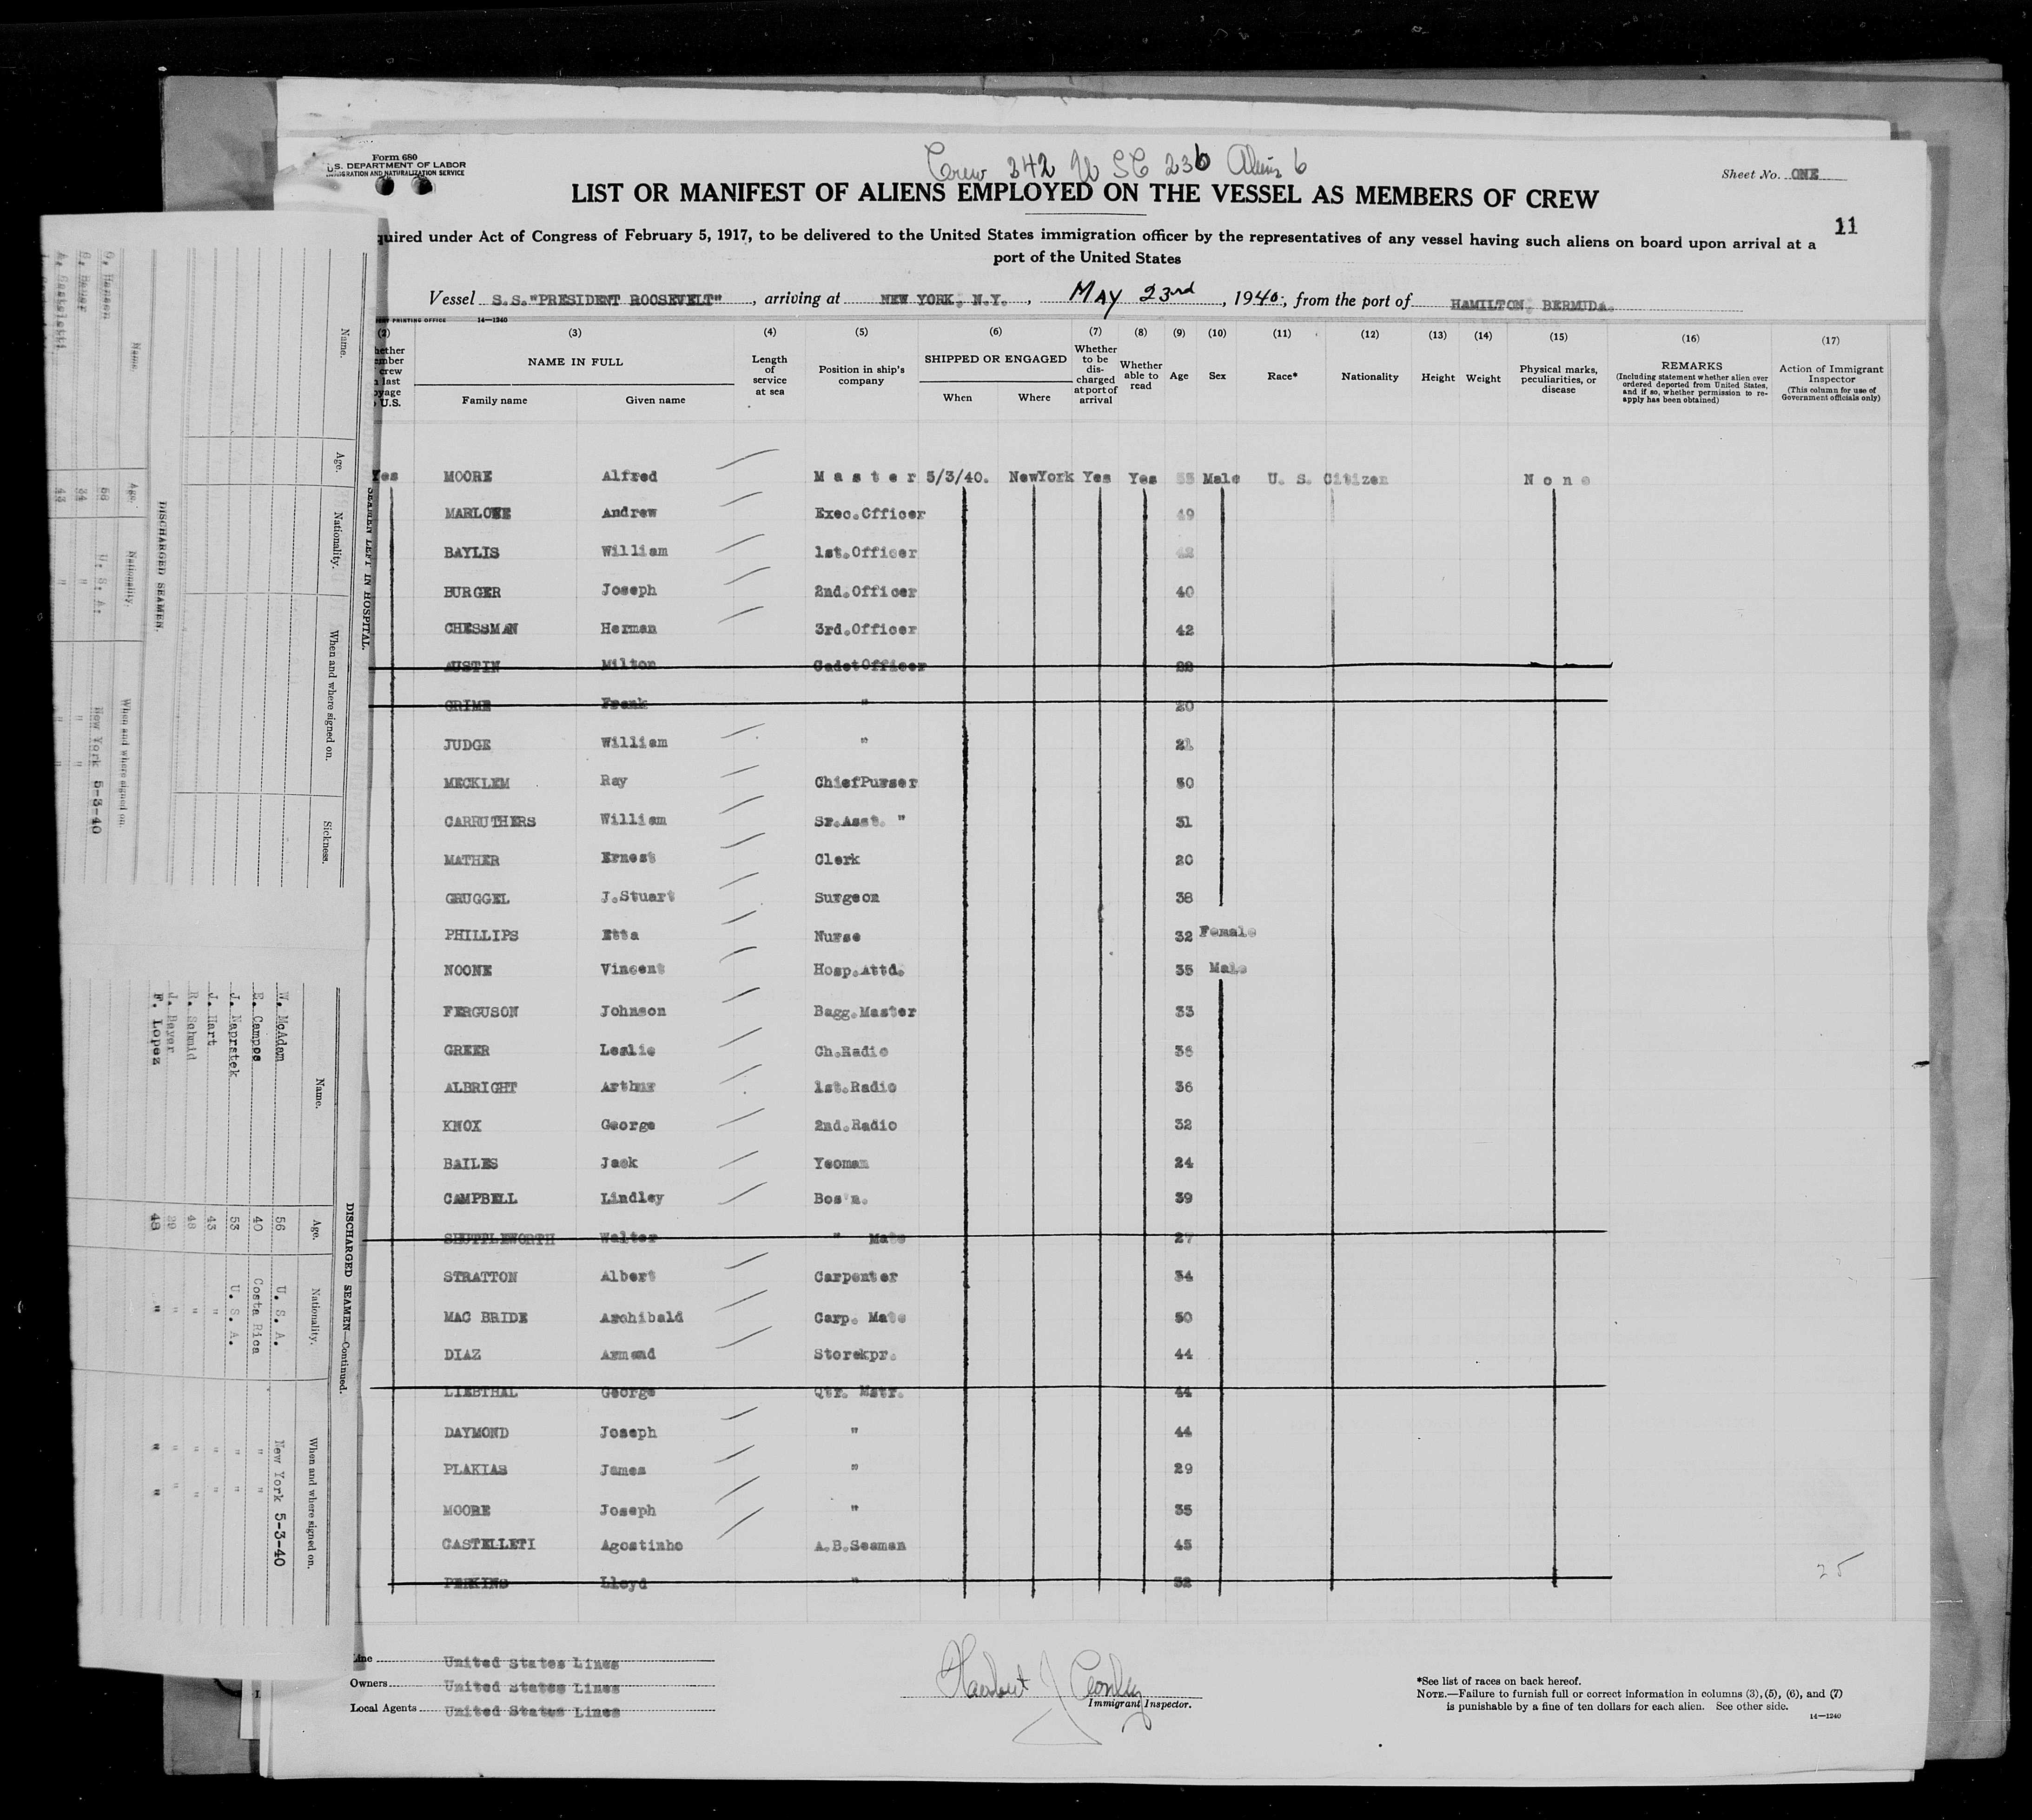 Form 680
U.S. DEPARTMENT OF LABOR
IMMIGRATION AND NATURALIZATION SERVICE
Crew 242 U SC 236 Aliens 6
Sheet No. ONE
LIST OR MANIFEST OF ALIENS EMPLOYED ON THE VESSEL AS MEMBERS OF CREW
11
quired under Act of Congress of February 5, 1917, to be delivered to the United States immigration officer by the representatives of any vessel having such aliens on board upon arrival at a
port of the United States
Vessel S.S."PRESIDENT ROOSEVELT", arriving at NEW YORK, N.Y., MAY 23rd, 1940, from the port of HAMILTON, BERMUDA.
PRINTING OFFICE 14—1240
(2) (3) (4) (5) (6) (7) (8) (9) (10) (11) (12) (13) (14) (15) (16) (17)
hether
mber
crew
last
oyage
U.S.
NAME IN FULL
Family name Given name
Length of service at sea
Position in ship's company
SHIPPED OR ENGAGED
When Where
Whether to be discharged at port of arrival
Whether able to read
Age Sex Race* Nationality Height Weight
Physical marks, peculiarities, or disease
REMARKS
(Including statement whether alien ever ordered deported from United States, and if so, whether permission to re-apply has been obtained)
Action of Immigrant Inspector
(This column for use of Government officials only)
Yes MOORE Alfred Master 5/3/40. NewYork Yes Yes 53 Male U. S. Citizen None
MARLOWE Andrew Exec.Officer 49
BAYLIS William 1st.Officer 42
BURGER Joseph 2nd.Officer 40
CHESSMAN Herman 3rd.Officer 42
AUSTIN Milton CadetOfficer 22
GRIME Frank " 20
JUDGE William " 21
MECKLEM Ray ChiefPurser 50
CARRUTHERS William Sr.Asst. " 31
MATHER Ernest Clerk 20
GRUGGEL J.Stuart Surgeon 38
PHILLIPS Etta Nurse 32 Female
NOONE Vincent Hosp.Attd. 35 Male
FERGUSON Johnson Bagg.Master 33
GREER Leslie Ch.Radio 36
ALBRIGHT Arthur 1st.Radio 36
KNOX George 2nd.Radio 32
BAILES Jack Yeoman 24
CAMPBELL Lindley Bos'n. 39
SHUTTLEWORTH Walter " Mate 27
STRATTON Albert Carpenter 34
MAC BRIDE Archibald Carp. Mate 50
DIAZ Armand Storekpr. 44
LIEBTHAL George Qtr. Mstr. 44
DAYMOND Joseph " 44
PLAKIAS James " 29
MOORE Joseph " 35
CASTELLETI Agostinho A.B.Seaman 45
PERKINS Lloyd " 32
25
Line United States Lines
Owners United States Lines
Local Agents United States Lines
Immigrant Inspector.
*See list of races on back hereof.
NOTE.—Failure to furnish full or correct information in columns (3), (5), (6), and (7)
is punishable by a fine of ten dollars for each alien. See other side.
14—1240
SEAMEN LEFT IN HOSPITAL.
Name. Age. Nationality. When and where signed on. Sickness.
DISCHARGED SEAMEN.
Name. Age. Nationality. When and where signed on.
Hansen 58 U. S. A. New York 5-3-40
34 " "
43 " "
DISCHARGED SEAMEN—Continued.
Name. Age. Nationality. When and where signed on.
W. McAdam 56 U. S. A. New York 5-3-40
E. Campos 40 Costa Rica " "
J. Naprstek 53 U. S. A. " "
J. Hart 43 " " "
R. Schmid 48 " " "
J. Bayer 29 " " "
F. Lopez 48 " " "